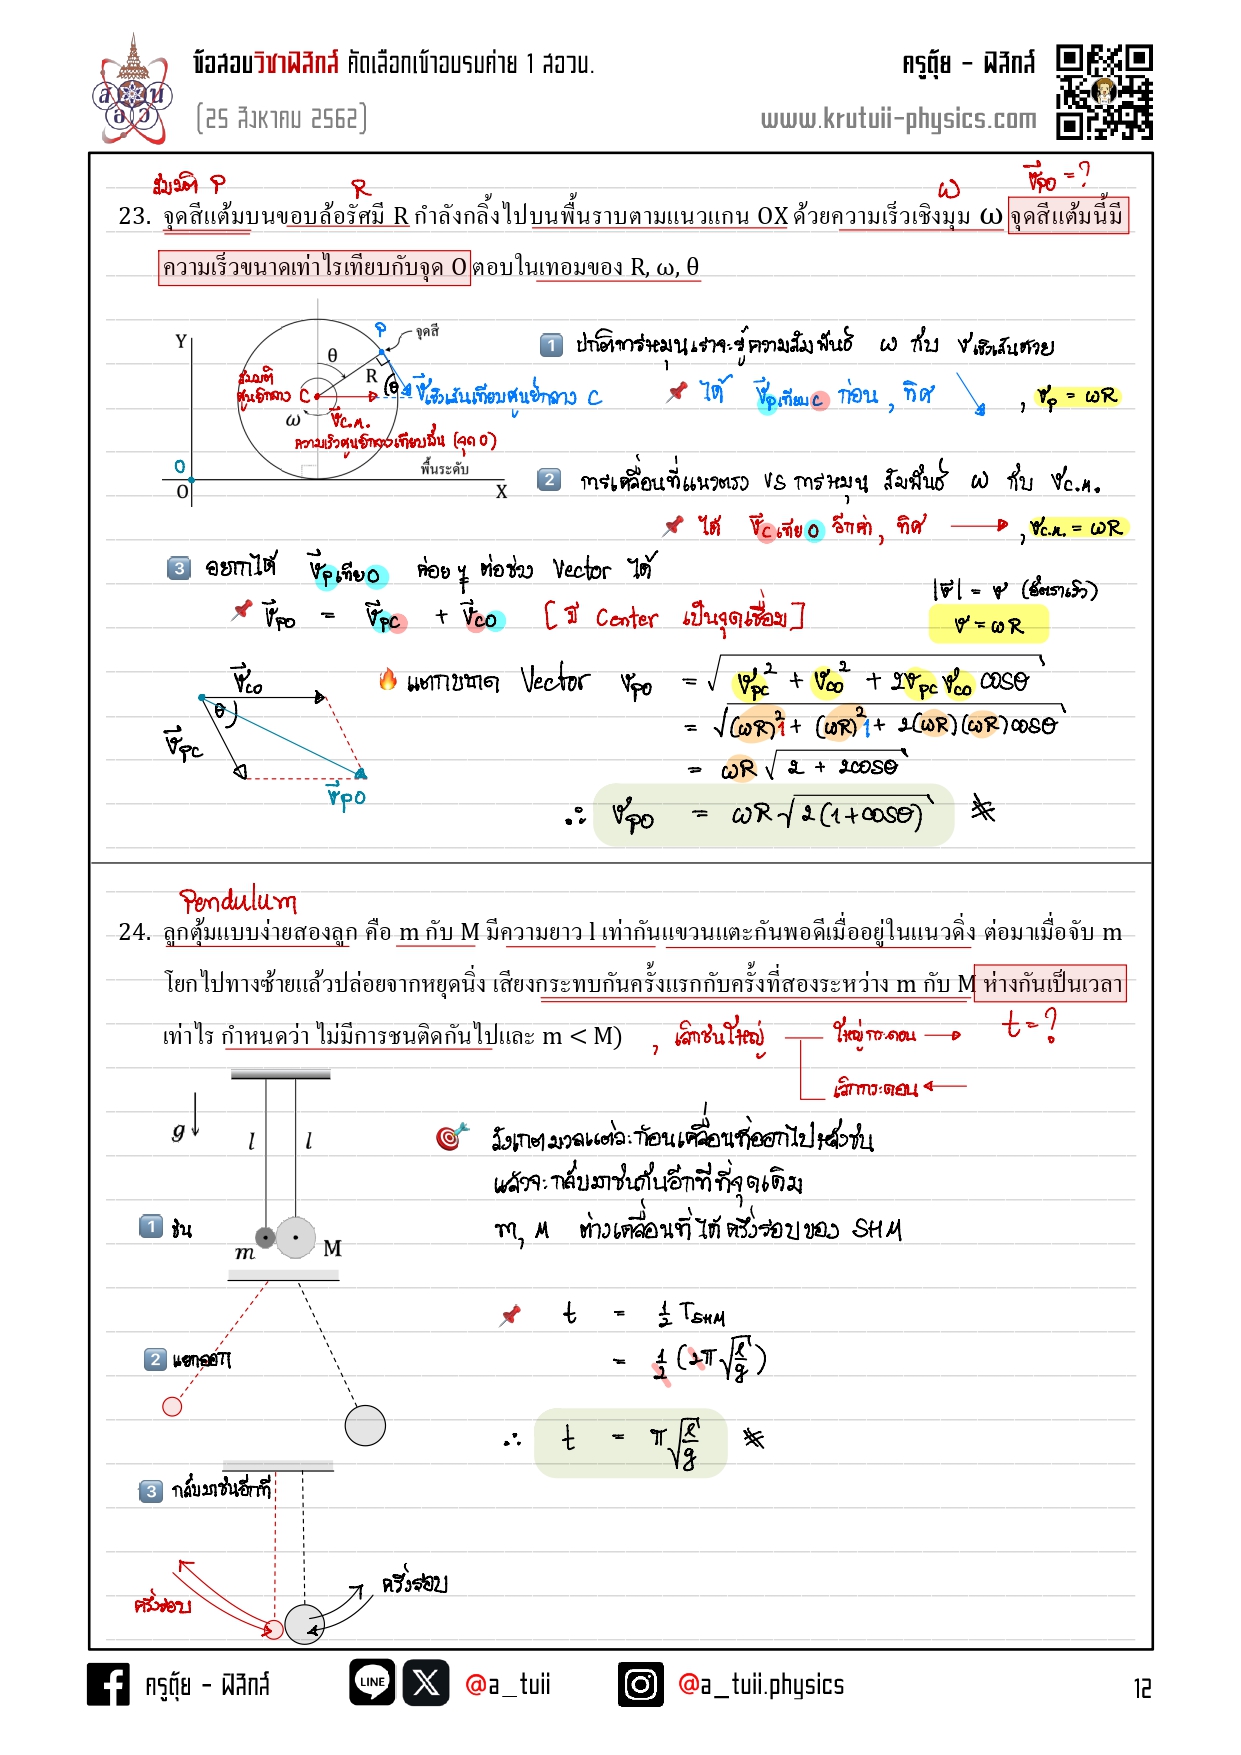 ข้อสอบวิชาฟิสิกส์ คัดเลือกเข้าอบรมค่าย 1 สอวน.
ครูตุ้ย - ฟิสิกส์
(25 สิงหาคม 2562)
www.krutuii-physics.com
สมมติ P
R
ω
v⃗PO = ?
23. จุดสีแต้มบนขอบล้อรัศมี R กำลังกลิ้งไปบนพื้นราบตามแนวแกน OX ด้วยความเร็วเชิงมุม ω จุดสีแต้มนี้มี
ความเร็วขนาดเท่าไรเทียบกับจุด O ตอบในเทอมของ R, ω, θ
Y
P
จุดสี
θ
R
θ
สมมติ
ศูนย์กลาง C
v⃗เชิงเส้นเทียบศูนย์กลาง C
ω
v⃗C.M.
ความเร็วศูนย์กลางเทียบพื้น (จุด O)
O
พื้นระดับ
O
X
1 ปกติการหมุนเราจะรู้ความสัมพันธ์ ω กับ vเชิงเส้นด้วย
ได้ v⃗PเทียบC ก่อน, ทิศ , vP = ωR
2 การเคลื่อนที่แนวตรง VS การหมุน สัมพันธ์ ω กับ vC.M.
ได้ v⃗CเทียบO อีกค่า, ทิศ → , vC.M. = ωR
3 อยากได้ v⃗PเทียบO ค่อย ๆ ต่อช่วง Vector ได้
v⃗PO = v⃗PC + v⃗CO [มี Center เป็นจุดเชื่อม]
|v⃗| = v (อัตราเร็ว)
v = ωR
v⃗CO
θ
v⃗PC
v⃗PO
แตกขนาด Vector vPO = √(vPC² + vCO² + 2vPC vCO cosθ)
= √((ωR)²1 + (ωR)²1 + 2(ωR)(ωR)cosθ)
= ωR √(2 + 2cosθ)
∴ vPO = ωR√(2(1+cosθ))
Pendulum
24. ลูกตุ้มแบบง่ายสองลูก คือ m กับ M มีความยาว l เท่ากันแขวนแตะกันพอดีเมื่ออยู่ในแนวดิ่ง ต่อมาเมื่อจับ m
โยกไปทางซ้ายแล้วปล่อยจากหยุดนิ่ง เสียงกระทบกันครั้งแรกกับครั้งที่สองระหว่าง m กับ M ห่างกันเป็นเวลา
เท่าไร กำหนดว่า ไม่มีการชนติดกันไปและ m < M)
, เล็กชนใหญ่
ใหญ่กระดอน →
เล็กกระดอน ←
t = ?
g
l
l
1 ชน
m
M
สังเกตมวลแต่ละก้อนเคลื่อนที่ออกไปหลังชน
แล้วจะกลับมาชนกันอีกทีที่จุดเดิม
m, M ต่างเคลื่อนที่ได้ครึ่งรอบของ SHM
t = ½ TSHM
= ½ (2π√(l/g))
∴ t = π√(l/g)
2 แยกออก
3 กลับมาชนอีกที
ครึ่งรอบ
ครึ่งรอบ
ครูตุ้ย - ฟิสิกส์
LINE
@a_tuii
@a_tuii.physics
12